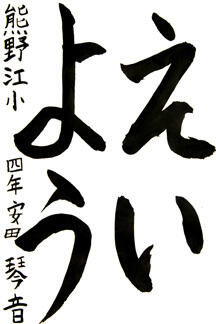 えい
よう
熊野江小 四年 安田 琴音